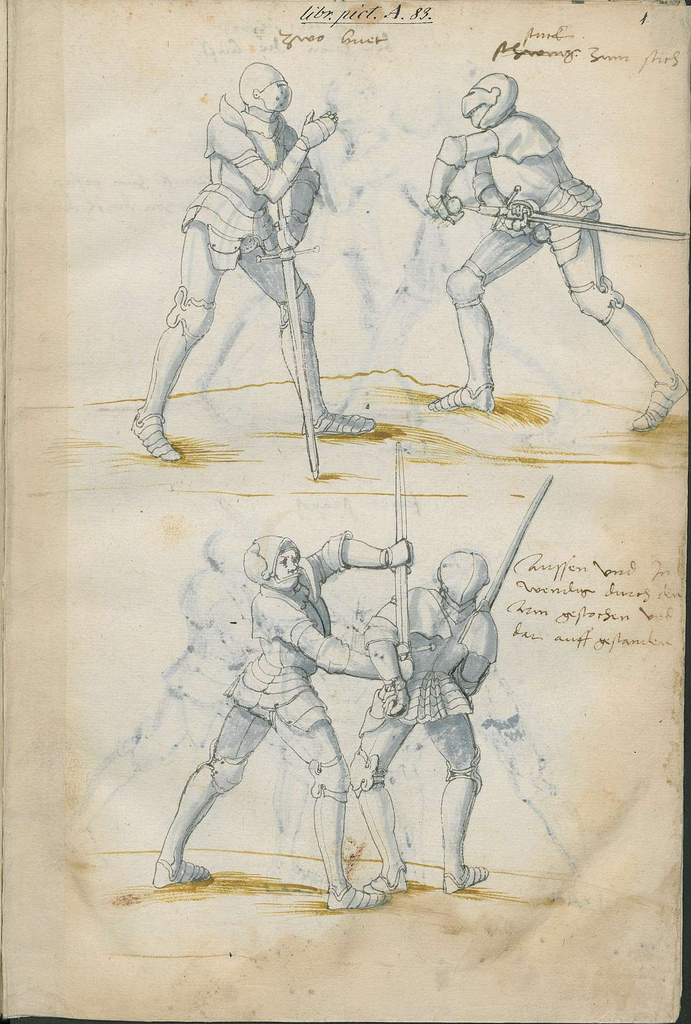 libr. pict. A. 83.
1
Zwo huet
stuck.
zum stich
Aussen und In
wendig durch den
Arm gestochen und
dar auff gestanden